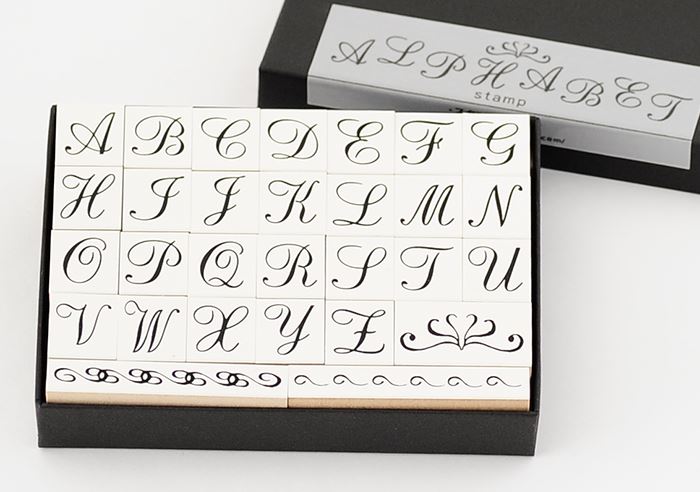 ALPHABET
stamp
A B C D E F G
H I J K L M N
O P Q R S T U
V W X Y Z